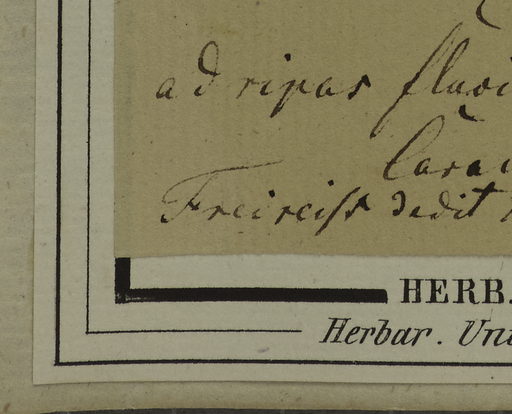 ad ripas fluvi
Cara
Freireiss dedit
HERB.
Herbar. Uni